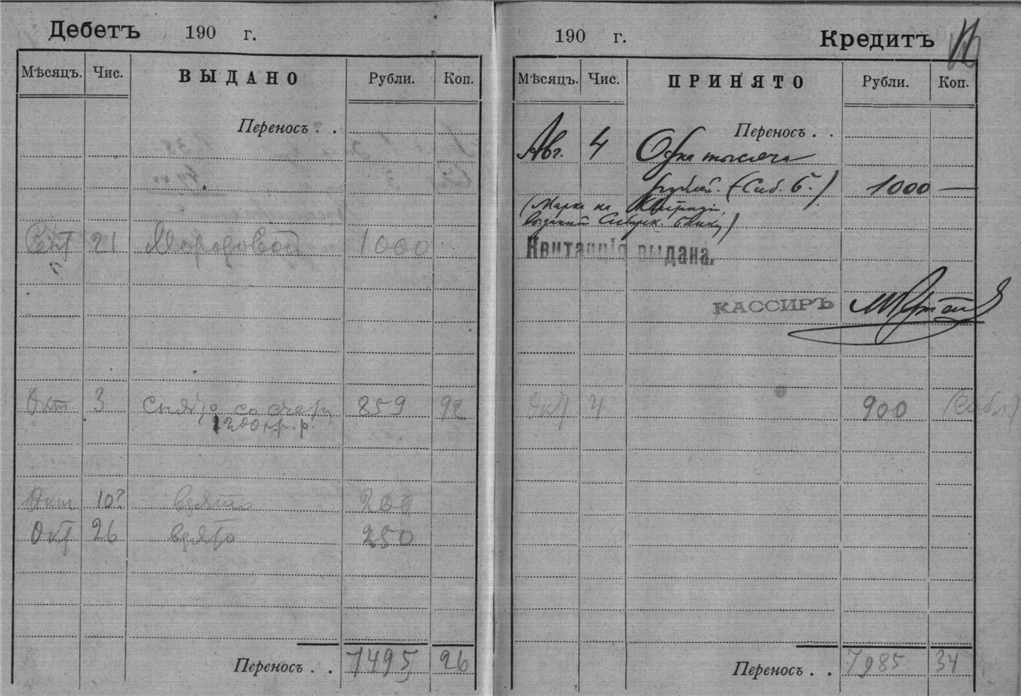 Дебетъ 190 г.
Мѣсяцъ. Чис. ВЫДАНО Рубли. Коп.
Переносъ . .
Сент 21 1000
Окт 3 снято со счета 859 92
1200 р.
Окт 10? взято 200
Окт 26 взято 250
Переносъ . . 7495 26
190 г. Кредитъ
Мѣсяцъ. Чис. ПРИНЯТО Рубли. Коп.
Переносъ . .
Авг. 4 Одна тысяча
рублей. (Сиб. Б.) 1000 —
(Марка на квитанціи,
выданной Сибирск. банку)
Квитанція выдана.
КАССИРЪ
Окт 4 900
Переносъ . . 7985 34